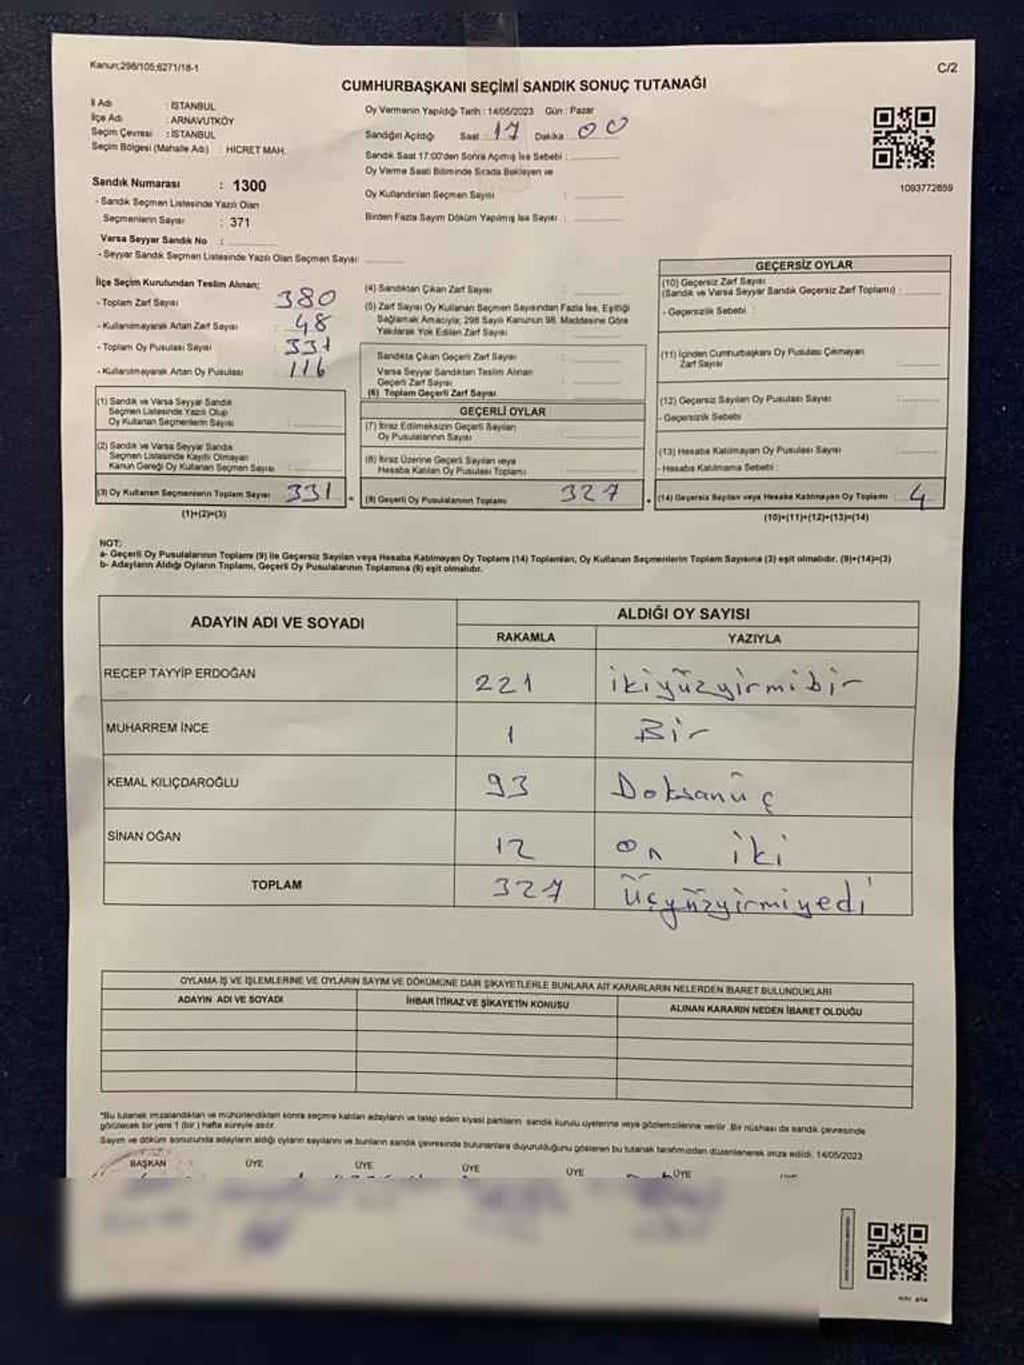 Kanun;298/105;6271/18-1
C/2
CUMHURBAŞKANI SEÇİMİ SANDIK SONUÇ TUTANAĞI
İl Adı : İSTANBUL
İlçe Adı : ARNAVUTKÖY
Seçim Çevresi : İSTANBUL
Seçim Bölgesi (Mahalle Adı) : HİCRET MAH.
Oy Vermenin Yapıldığı Tarih : 14/05/2023 Gün : Pazar
Sandığın Açıldığı Saat : 17 Dakika : 00
Sandık Saat 17:00'den Sonra Açılmış İse Sebebi :
Oy Verme Saati Bitiminde Sırada Bekleyen ve
Oy Kullandırılan Seçmen Sayısı :
Birden Fazla Sayım Döküm Yapılmış İse Sayısı :
1093772659
Sandık Numarası : 1300
- Sandık Seçmen Listesinde Yazılı Olan
Seçmenlerin Sayısı : 371
Varsa Seyyar Sandık No :
- Seyyar Sandık Seçmen Listesinde Yazılı Olan Seçmen Sayısı:
İlçe Seçim Kurulundan Teslim Alınan;
- Toplam Zarf Sayısı : 380
- Kullanılmayarak Artan Zarf Sayısı : 48
- Toplam Oy Pusulası Sayısı : 331
- Kullanılmayarak Artan Oy Pusulası : 116
(1) Sandık ve Varsa Seyyar Sandık
Seçmen Listesinde Yazılı Olup
Oy Kullanan Seçmenlerin Sayısı :
(2) Sandık ve Varsa Seyyar Sandık
Seçmen Listesinde Kayıtlı Olmayan
Kanun Gereği Oy Kullanan Seçmen Sayısı :
(3) Oy Kullanan Seçmenlerin Toplam Sayısı : 331 =
(1)+(2)=(3)
(4) Sandıktan Çıkan Zarf Sayısı :
(5) Zarf Sayısı Oy Kullanan Seçmen Sayısından Fazla İse, Eşitliği
Sağlamak Amacıyla; 298 Sayılı Kanunun 98. Maddesine Göre
Yakılarak Yok Edilen Zarf Sayısı :
Sandıkta Çıkan Geçerli Zarf Sayısı :
Varsa Seyyar Sandıktan Teslim Alınan
Geçerli Zarf Sayısı :
(6) Toplam Geçerli Zarf Sayısı :
GEÇERLİ OYLAR
(7) İtiraz Edilmeksizin Geçerli Sayılan
Oy Pusulalarının Sayısı :
(8) İtiraz Üzerine Geçerli Sayılan veya
Hesaba Katılan Oy Pusulaları Toplamı :
(9) Geçerli Oy Pusulalarının Toplamı : 327 +
GEÇERSİZ OYLAR
(10) Geçersiz Zarf Sayısı
(Sandık ve Varsa Seyyar Sandık Geçersiz Zarf Toplamı) :
- Geçersizlik Sebebi :
(11) İçinden Cumhurbaşkanı Oy Pusulası Çıkmayan
Zarf Sayısı :
(12) Geçersiz Sayılan Oy Pusulası Sayısı :
- Geçersizlik Sebebi :
(13) Hesaba Katılmayan Oy Pusulası Sayısı :
- Hesaba Katılmama Sebebi :
(14) Geçersiz Sayılan veya Hesaba Katılmayan Oy Toplamı : 4
(10)+(11)+(12)+(13)=(14)
NOT:
a- Geçerli Oy Pusulalarının Toplamı (9) İle Geçersiz Sayılan veya Hesaba Katılmayan Oy Toplamı (14) Toplamları, Oy Kullanan Seçmenlerin Toplam Sayısına (3) eşit olmalıdır. (9)+(14)=(3)
b- Adayların Aldığı Oyların Toplamı, Geçerli Oy Pusulalarının Toplamına (9) eşit olmalıdır.
ADAYIN ADI VE SOYADI ALDIĞI OY SAYISI
RAKAMLA YAZIYLA
RECEP TAYYİP ERDOĞAN 221 ikiyüzyirmibir
MUHARREM İNCE 1 Bir
KEMAL KILIÇDAROĞLU 93 Doksanüç
SİNAN OĞAN 12 on iki
TOPLAM 327 üçyüzyirmiyedi
OYLAMA İŞ VE İŞLEMLERİNE VE OYLARIN SAYIM VE DÖKÜMÜNE DAİR ŞİKAYETLERLE BUNLARA AİT KARARLARIN NELERDEN İBARET BULUNDUKLARI
ADAYIN ADI VE SOYADI İHBAR İTİRAZ VE ŞİKAYETİN KONUSU ALINAN KARARIN NEDEN İBARET OLDUĞU
*Bu tutanak imzalandıktan ve mühürlendikten sonra seçime katılan adayların ve talep eden siyasi partilerin sandık kurulu üyelerine veya gözlemcilerine verilir. Bir nüshası da sandık çevresinde
görülecek bir yere 1 (bir) hafta süreyle asılır.
Sayım ve döküm sonucunda adayların aldığı oyların sayılarını ve bunların sandık çevresinde bulunanlara duyurulduğunu gösteren bu tutanak tarafımızdan düzenlenerek imza edildi. 14/05/2023
BAŞKAN ÜYE ÜYE ÜYE ÜYE ÜYE